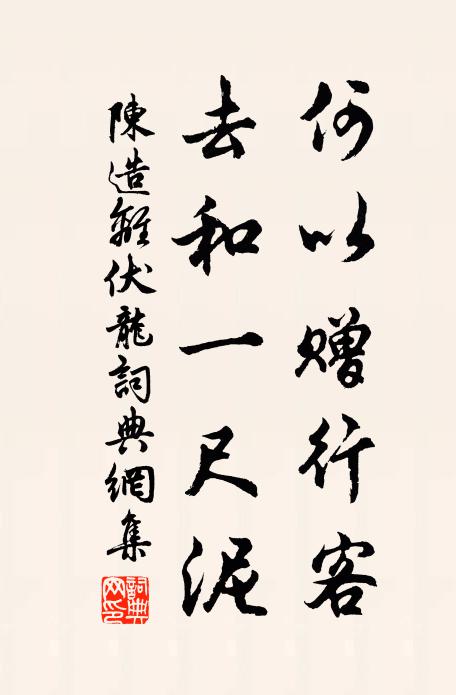 何以赠行客
去和一尺泥
陳造離伏龍詞典網集
詞典
网印